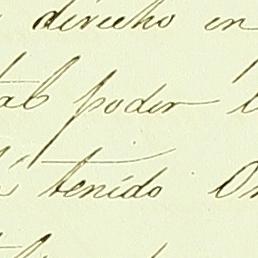 derecho en
tal poder
tenido